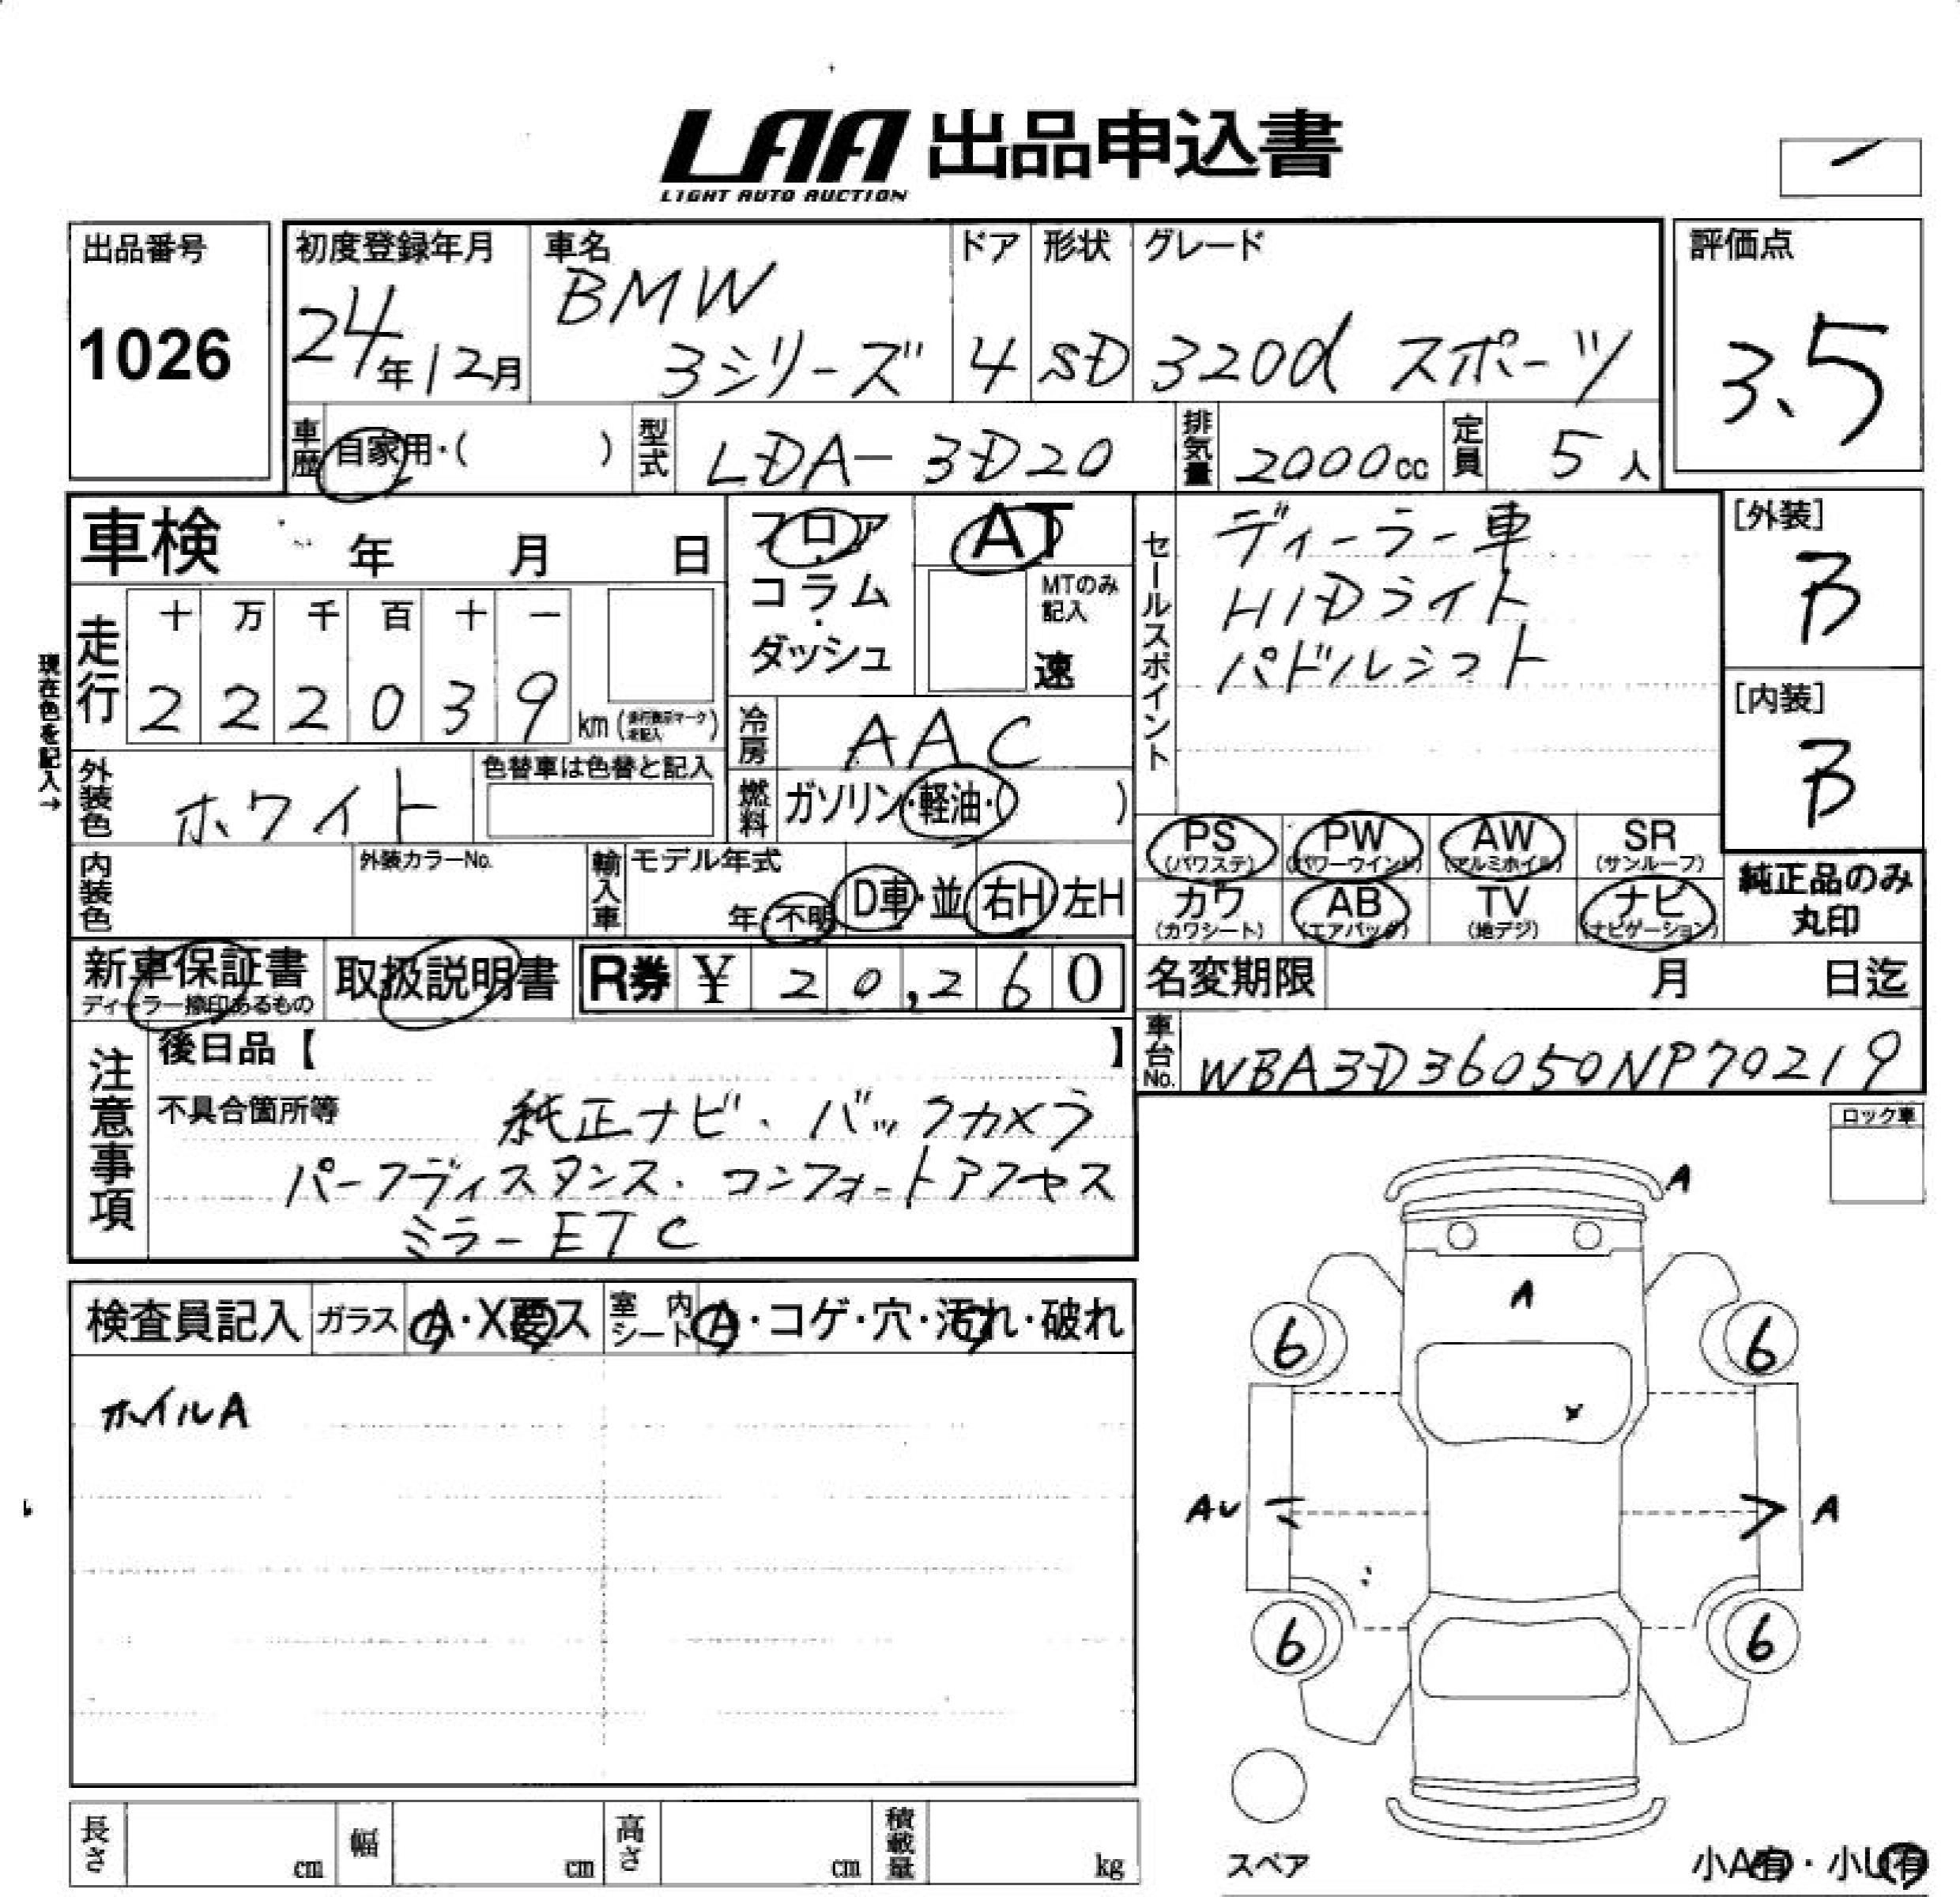 LAA 出品申込書
LIGHT AUTO AUCTION
出品番号
1026
初度登録年月
24年12月
車名
BMW
3シリーズ
ドア
4
形状
SD
グレード
320d スポーツ
評価点
3.5
車歴 自家用・( )
型式 LDA-3D20
排気量 2000cc
定員 5人
車検 年 月 日
フロア
・
コラム
・
ダッシュ
AT
MTのみ
記入
速
セールスポイント
ディーラー車
HIDライト
パドルシフト
[外装]
B
[内装]
B
現在色を記入→
走行
十 万 千 百 十 一
2 2 2 0 3 9 km
冷房 AAC
外装色 ホワイト
色替車は色替と記入
燃料 ガソリン・軽油・( )
内装色
外装カラーNo.
輸入車
モデル年式
年・不明
D車・並
右H・左H
PS
(パワステ)
PW
(パワーウインド)
AW
(アルミホイル)
SR
(サンルーフ)
カワ
(カワシート)
AB
(エアバッグ)
TV
(地デジ)
ナビ
(ナビゲーション)
純正品のみ
丸印
新車保証書
ディーラー捺印あるもの
取扱説明書
R券 ¥ 20,260
名変期限 月 日迄
車台No. WBA3D36050NP70219
注意事項
後日品【 】
不具合箇所等
純正ナビ、バックカメラ
パークディスタンス、コンフォートアクセス
ミラーETC
ロック車
検査員記入
ガラス A・X要ス
室内シート A・コゲ・穴・汚れ・破れ
ホイルA
A
A
6 6
X
AU A
6 6
スペア
小A有・小U有
長さ cm
幅 cm
高さ cm
積載量 kg